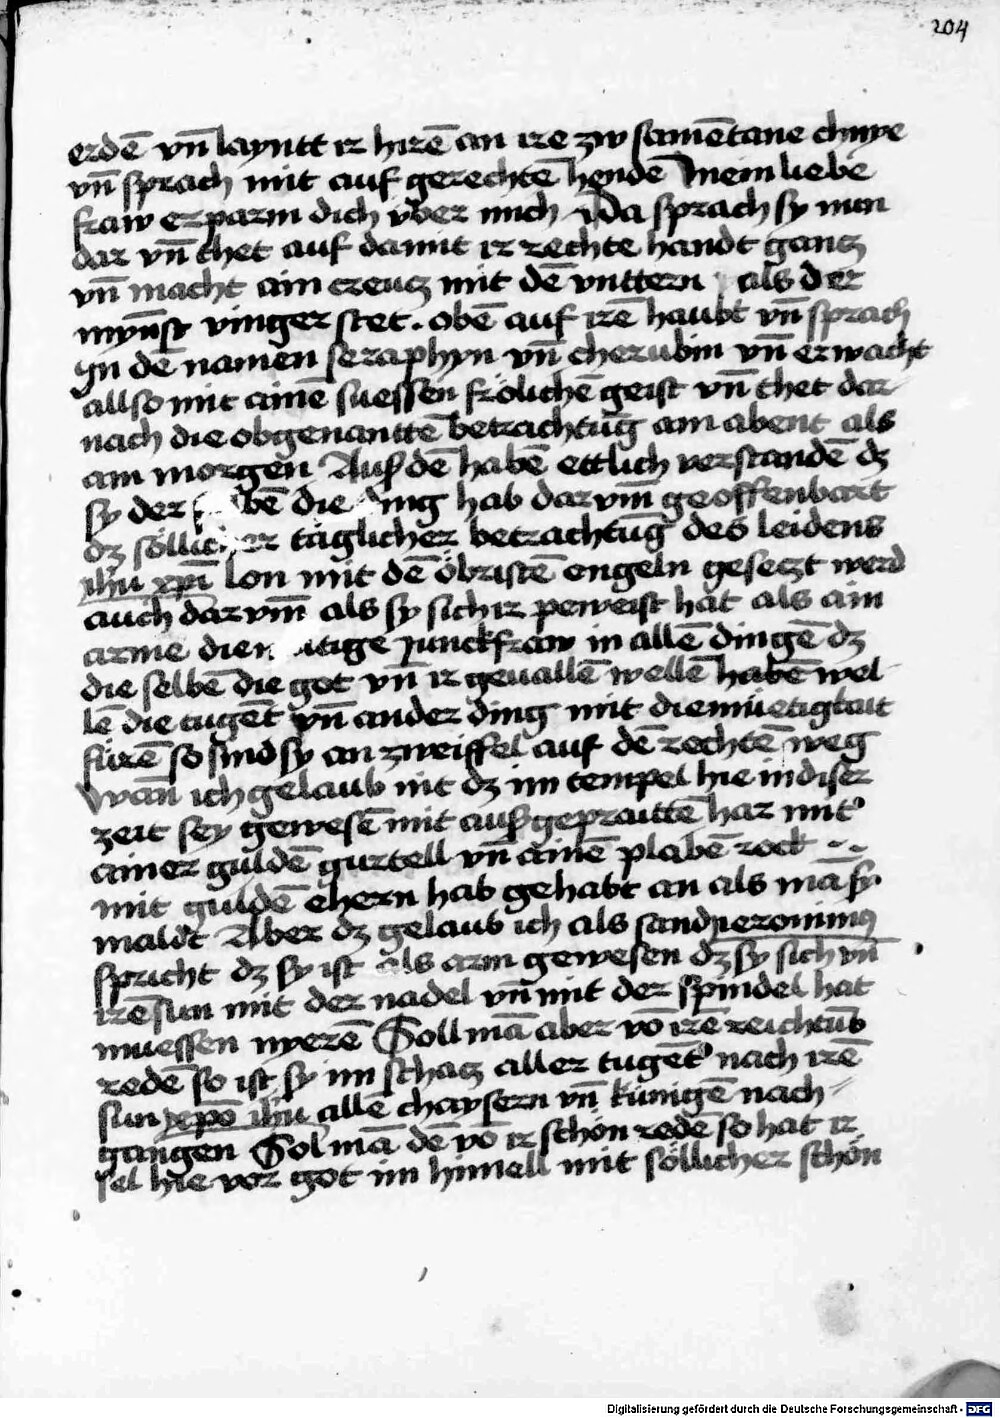 204
erdē vn̄ layntt ir hirē an ire zw samētane chnye
vn̄ sprach mit auf gerechtē hendē Mein liebe
fraw erparm dich vber mich Da sprach sy nun
dar vn̄ thet auf damit ir rechte handt gantz
vn̄ macht ain creutz mit dē vnttern als der
mynst vinger stet . obē auf irē haubt vn̄ sprach
In dē namen seraphyn vn̄ cherubim vn̄ erwacht
allso mit aimē suessen frölichē geist vn̄ thet dar
nach die obgenanttē betrachtūg am abent als
am morgen Aus dē habē ettlich verstandē dz
sy der bē die ding hab darvm̄ geoffenbart
dz söllicher täglicher betrachtūg des leidens
ihū xpī lon mit dē öbristē engeln gesetzt werd
auch darvm̄ als sy sich ir peweist hat als ain
arme diemutige junckfraw in allē dingē dz
die selbē die got vn̄ ir geuallē wellē habē wel
lē die tugēt vn̄ ander ding mit diemüetigkait
fürē so sind sy an zweiffel auf dē rechtē weg
Wan̄ ich gelaub nit dz im tempel hie in diser
zeit sey gewesē mit aufgepraittē har mit
ainer guldē gurtell vn̄ ainē plabē rock
mit guldē ehern hab gehabt an als mā sy
maldt Aber dz gelaub ich als sand jeronimus
spricht dz sy ist als arm gewesen dz sy sich vn̄
irē sun mit der nadel vn̄ mit der spindel hat
muessen nyerē Soll mā aber vō irē reichtūb
redē so ist sy im schatz aller tugēt nach irē
sun xpō ihū allē chaysern vn̄ künigē nach
gangen Sol mā dē vō ir schön redē so hat ir
sel hie vor got im himell mit söllicher schön
Digitalisierung gefördert durch die Deutsche Forschungsgemeinschaft - DFG